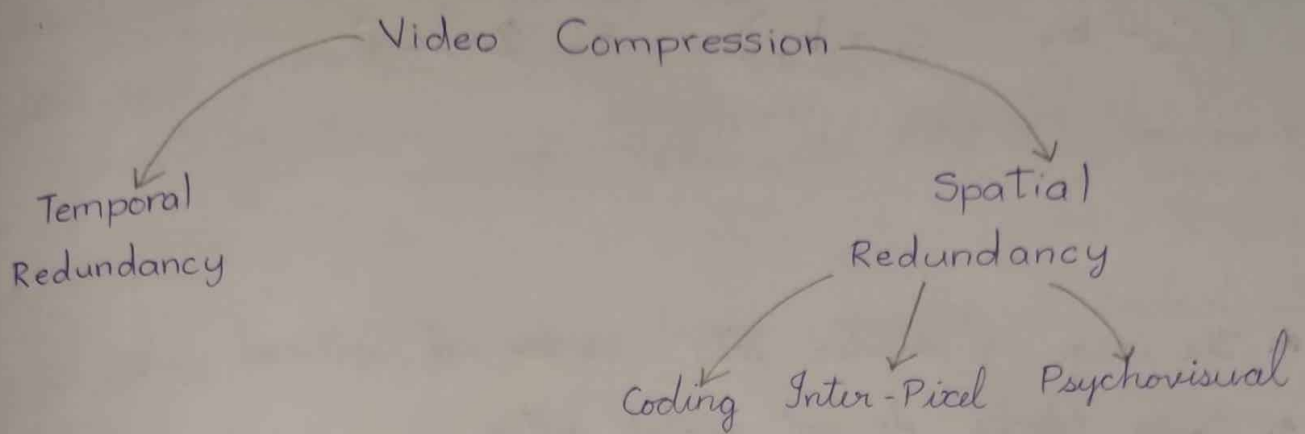 Video Compression
Temporal
Redundancy
Spatial
Redundancy
Coding Inter-Pixel Psychovisual